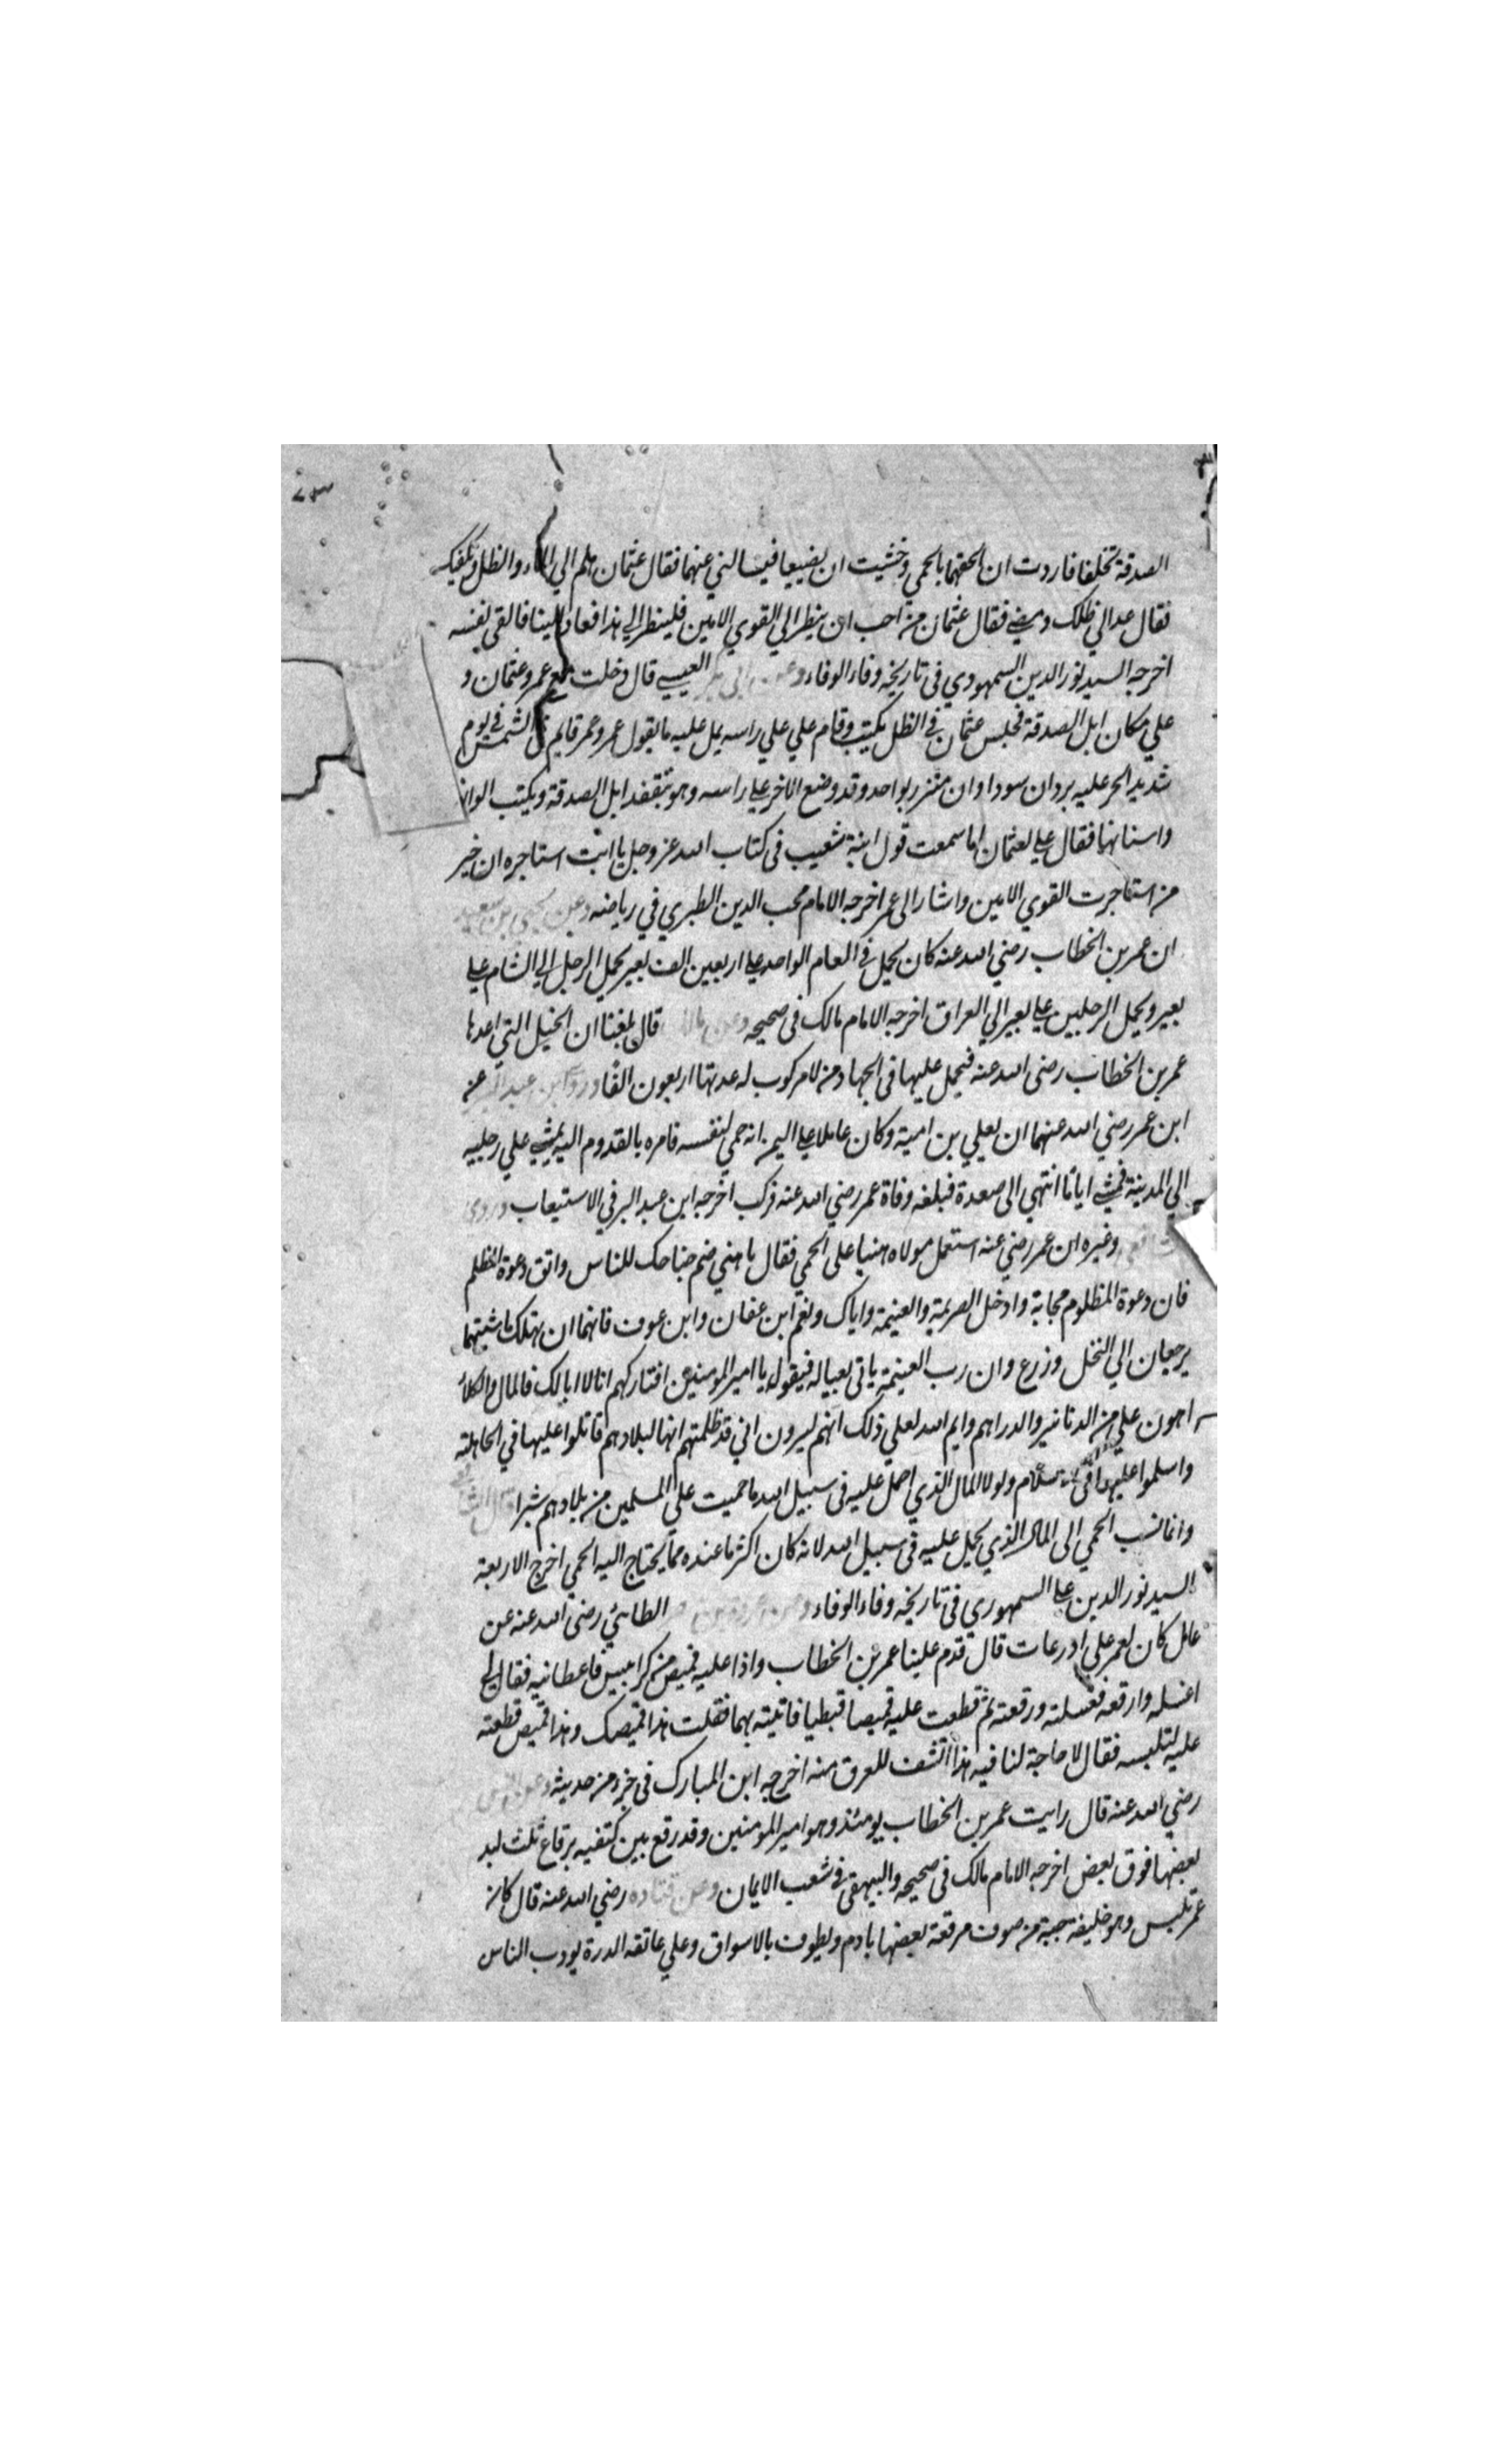 الصدقة تخلفا فاردت ان الحقهما بالحمى وخشيت ان يضيعا فيسالني عنهما فقال عثمان هلم الي الماء والظل ونكفيك
فقال عد الي ظلك ومضي فقال عثمان من احب ان ينظر الي القوي الامين فلينظر الي هذا فعاد الينا فالقى نفسه
اخرجه السيد نور الدين السمهودي في تاريخه وفاء الوفاء وعن ابي بكر العبسي قال دخلت مع عمر وعثمان و
علي مكان ابل الصدقة فجلس عثمان في الظل يكتب وقام علي علي راسه يمل عليه ما يقول عمر وعمر قايم في الشمس في يوم
شديد الحر عليه بردان سوداوان متزر بواحد وقد وضع الاخر علي راسه وهو يتفقد ابل الصدقة ويكتب الوانها
واسنانها فقال علي لعثمان اما سمعت قول ابنة شعيب في كتاب الله عز وجل يا ابت استاجره ان خير
من استاجرت القوي الامين واشار الى عمر اخرجه الامام محب الدين الطبري في رياضه وعن يحيى بن سعيد
ان عمر بن الخطاب رضي الله عنه كان يحمل في العام الواحد علي اربعين الف بعير يحمل الرجل الي الشام علي
بعير ويحمل الرجلين علي بعير الي العراق اخرجه الامام مالك في صحيحه وعن مالك قال بلغنا ان الخيل التي اعدها
عمر بن الخطاب رضى الله عنه فيحمل عليها في الجهاد ومن لا مركوب له عدتها اربعون الفا وروى ابن عبد البر عن
ابن عمر رضي الله عنهما ان يعلي بن امية وكان عاملا علي اليمن انه حمي لنفسه فامره بالقدوم اليه يمشي علي رجليه
الي المدينة فمشي اياما انتهي الى صعدة فبلغه وفاة عمر رضي الله عنه فركب اخرجه ابن عبد البر في الاستيعاب وروى
وغيره ان عمر رضي عنه استعمل مولاه هنيا على الحمي فقال يا هني ضم جناحك للناس واتق دعوة المظلم
فان دعوة المظلوم مجابة وادخل الصريمة والغنيمة واياك ونعم ابن عفان وابن عوف فانهما ان يهلك ماشيتهما
يرجعان الي النخل وزرع وان رب الغنيمة ياتى بعياله فيقول يا امير المومنين افتاركهم انا لا ابا لك فالمال والكلأ
اهون علي من الدنانير والدراهم وايم الله لعلي ذلك انهم ليرون اني قد ظلمتهم انها لبلادهم قاتلوا عليها في الجاهلة
واسلموا عليها في الاسلام ولولا المال الذي احمل عليه في سبيل الله ما حميت علي المسلمين من بلادهم شبرا
وانما نسب الحمي الى المال الذي يحمل عليه في سبيل الله لانه كان اكثر ما عنده مما يحتاج اليه الحمي اخرج الاربعة
السيد نور الدين علي السمهوري في تاريخه وفاء الوفاء الطائي رضى الله عنه عن
عامل كان لعمر علي ادرعات قال قدم علينا عمر بن الخطاب واذا عليه قميص من كرابيس فاعطانيه فقال لي
اغسله وارقعه فغسلته ورقعته ثم قطعت عليه قميصا قبطيا فاتيته بهما فقلت هذا قميصك وهذا قميص قطعته
عليه لتلبسه فقال لا حاجة لنا فيه هذا انشف للعرق منه اخرجه ابن المبارك في جزء من حديثه
رضي الله عنه قال رايت عمر بن الخطاب يومئذ وهو امير المومنين وقد رقع بين كتفيه برقاع ثلث لبد
بعضها فوق بعض اخرجه الامام مالك في صحيحه والبيهقي في شعب الايمان وعن قتاده رضي الله عنه قال كان
عمر يلبس وهو خليفة جبة من صوف مرقعة بعضها بادم ويطوف بالاسواق وعلي عاتقه الدرة يودب الناس